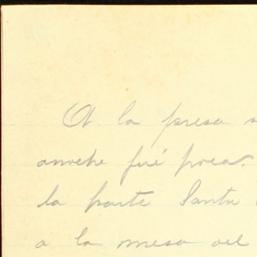 A la presa
anoche fué poca.
la parte Santa
a la mesa del